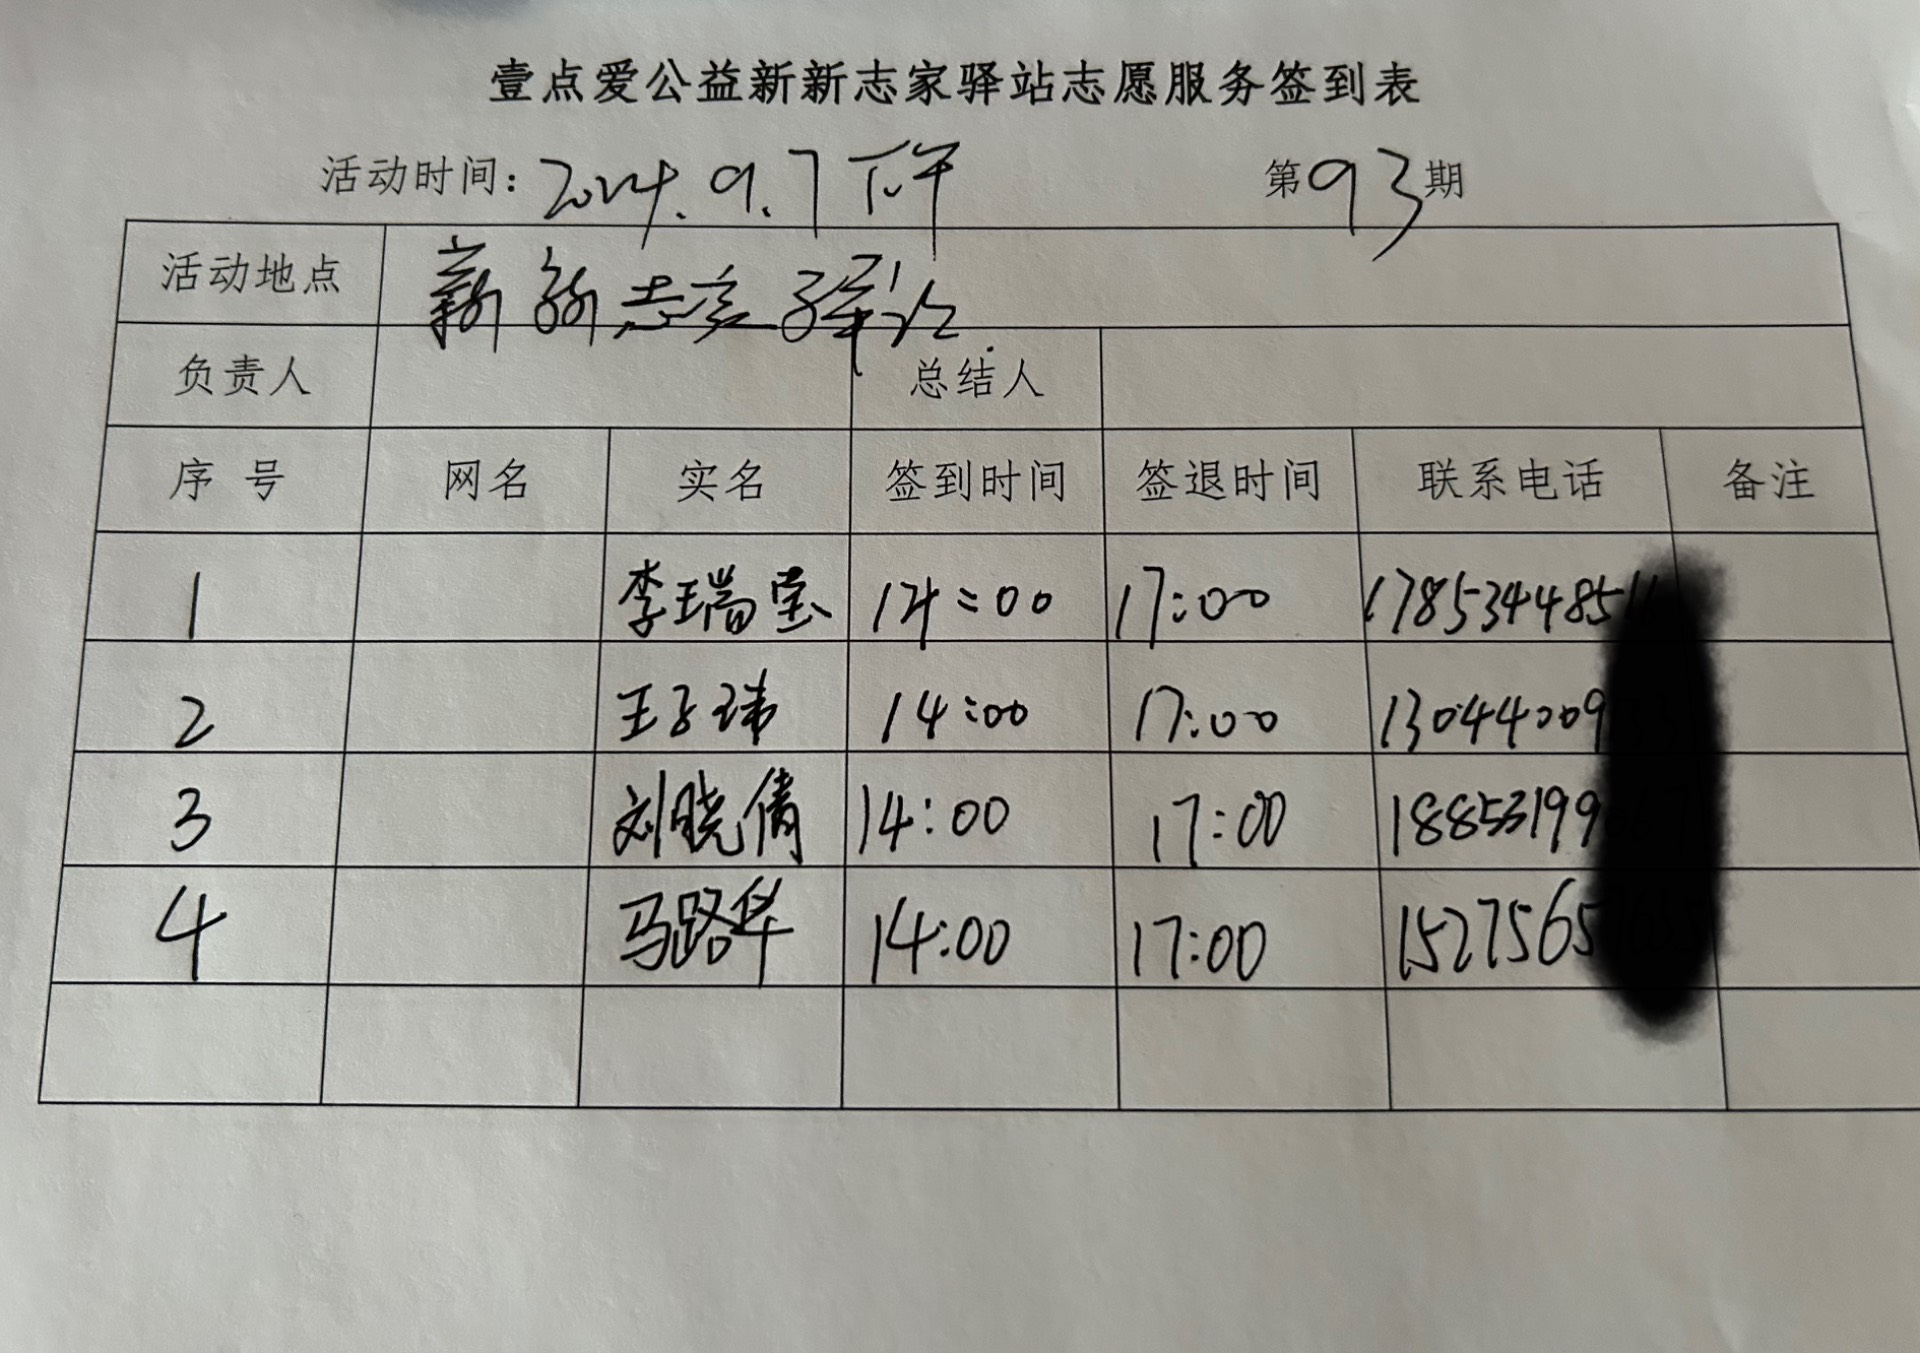 壹点爱公益新新志家驿站志愿服务签到表
活动时间：2024.9.7下午 第93期
活动地点 新新志家驿站
负责人 总结人
序号 网名 实名 签到时间 签退时间 联系电话 备注
1 李瑞莹 14:00 17:00 178534485
2 王子玮 14:00 17:00 13044009
3 刘晓倩 14:00 17:00 18853199
4 马路华 14:00 17:00 1527565